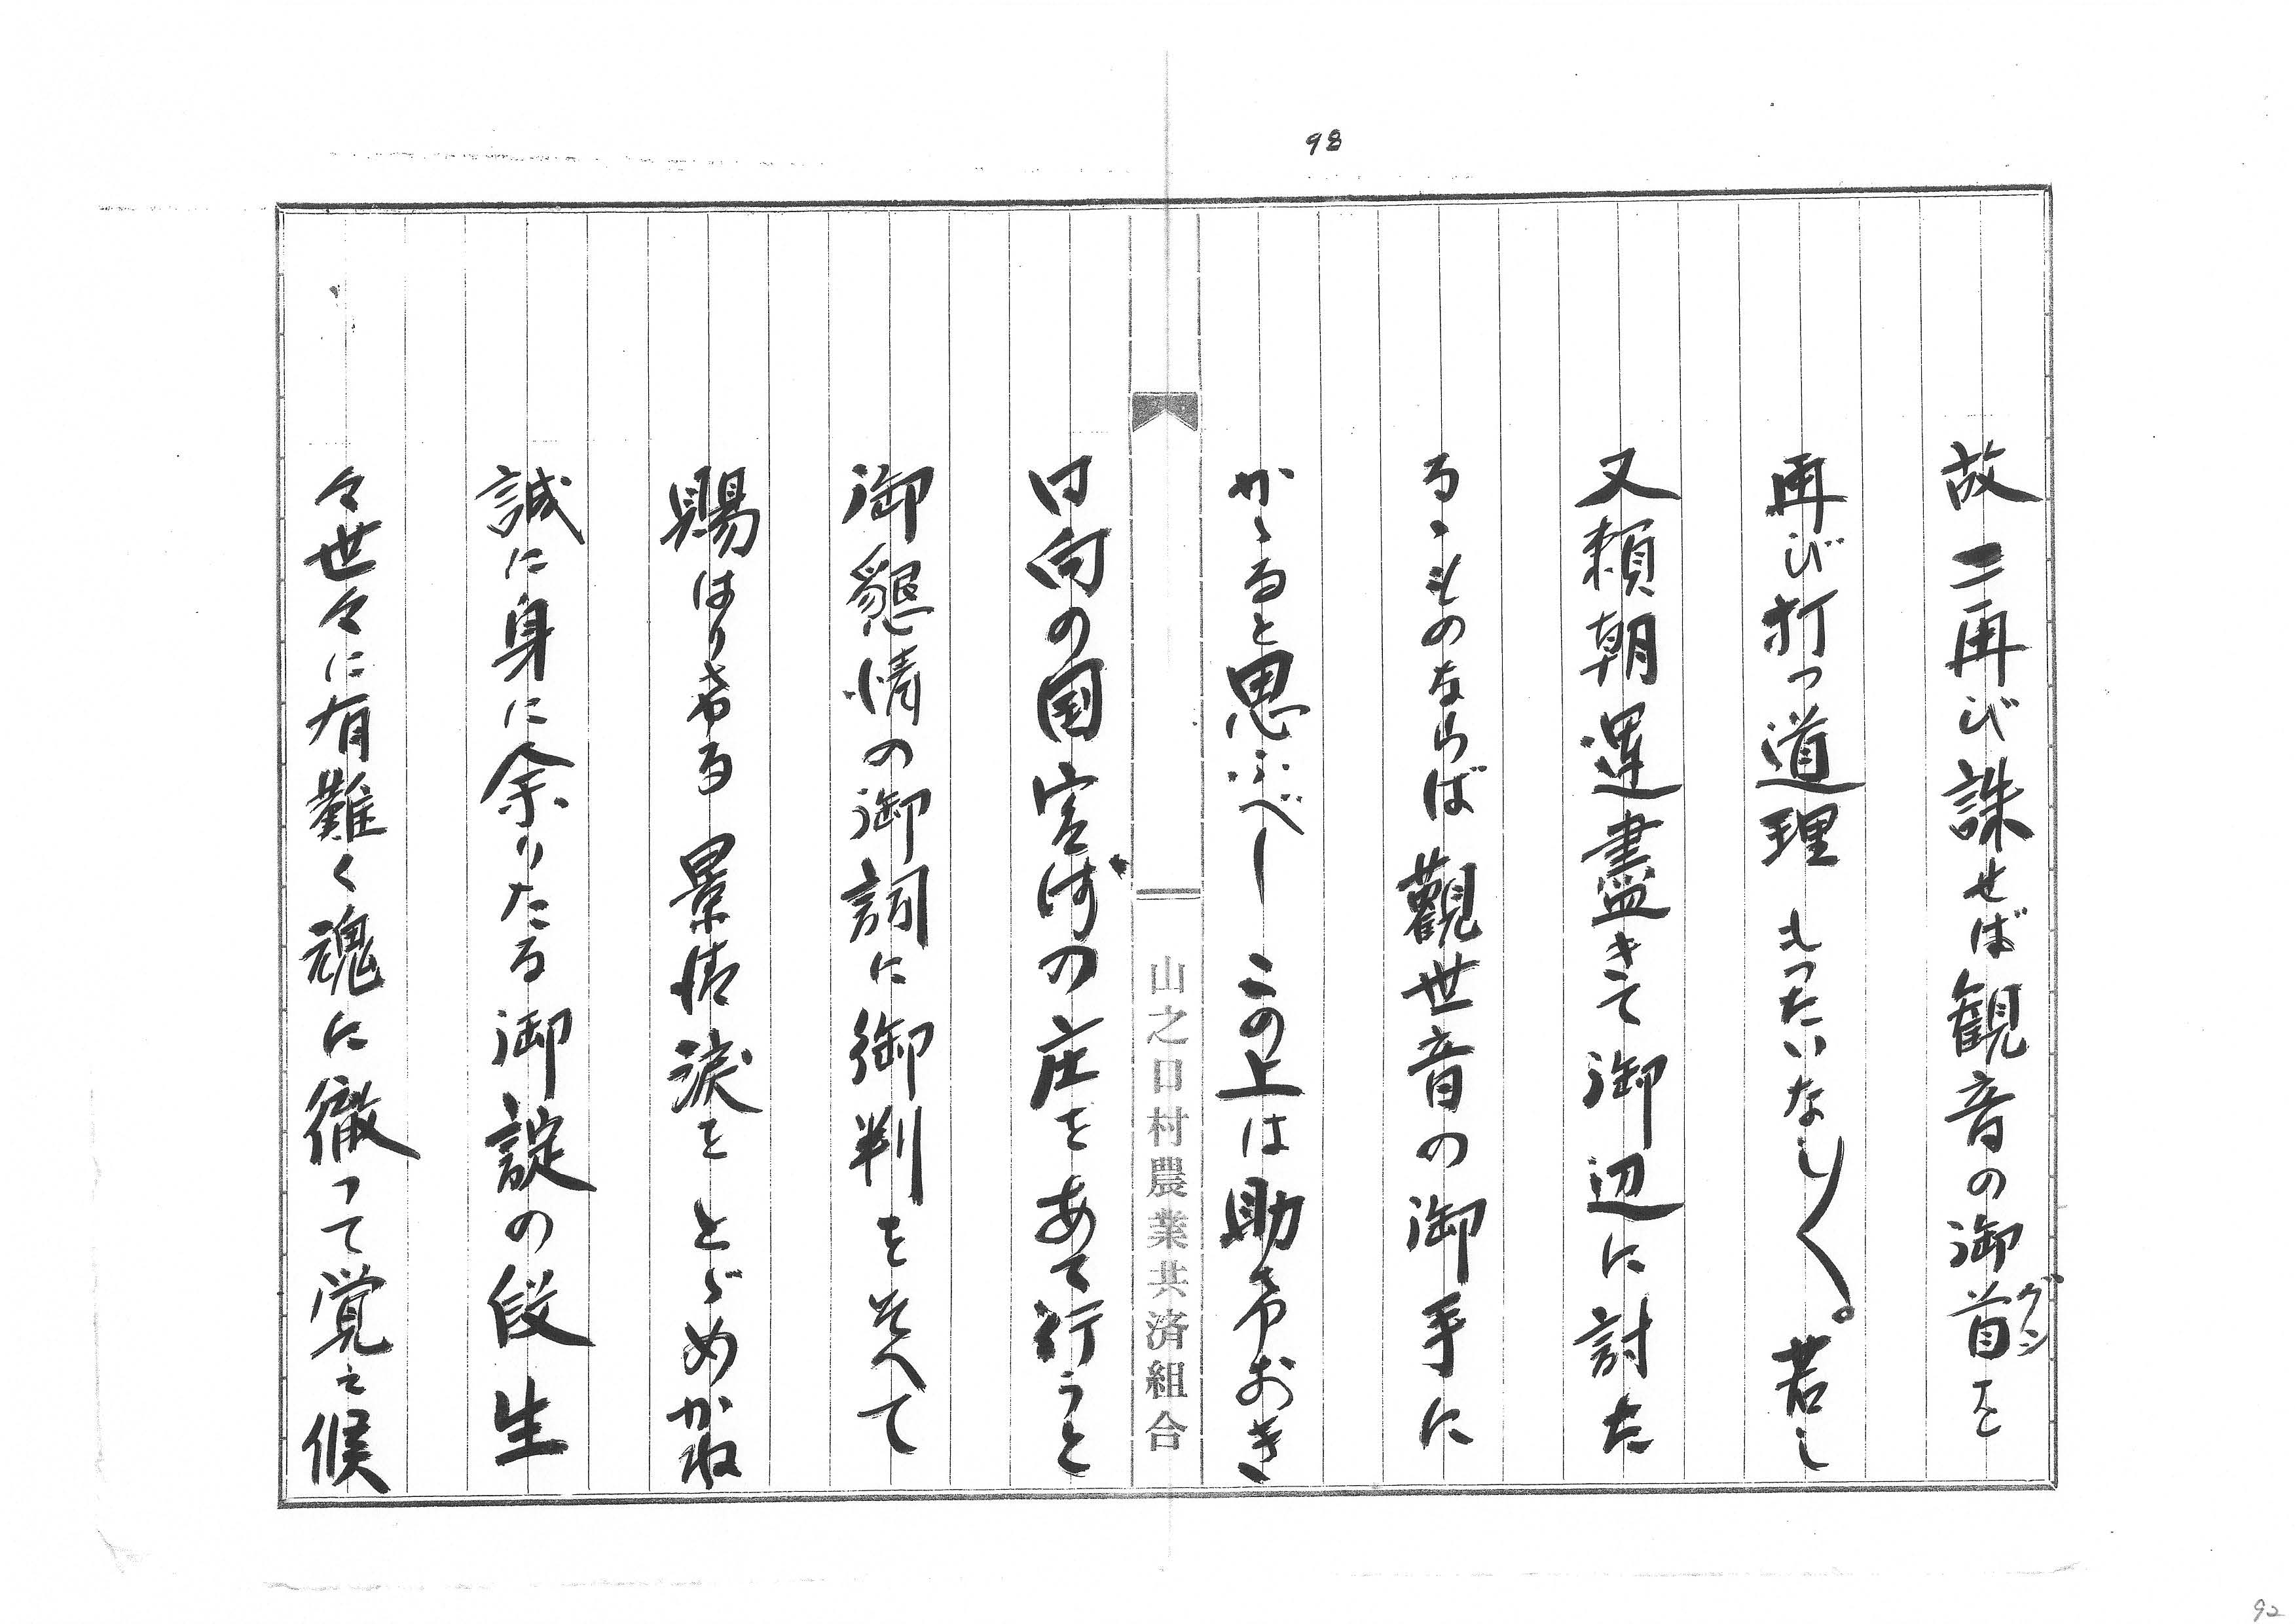 98
故二再び誅せば観音の御首を
グシ
再び打つ道理 もったいなし〱。若し
又頼朝運盡きて御辺に討た
るゝものならば觀世音の御手に
かゝると思ふべし この上は助けおき
日向の国宮崎の庄をあて行うと
御懇情の御詞に御判をそへて
賜はりける 景清涙をとゞめかね
誠に身に余りたる御諚の段生
々世々に有難く魂に徹って覚え候
山之口村農業共済組合
92